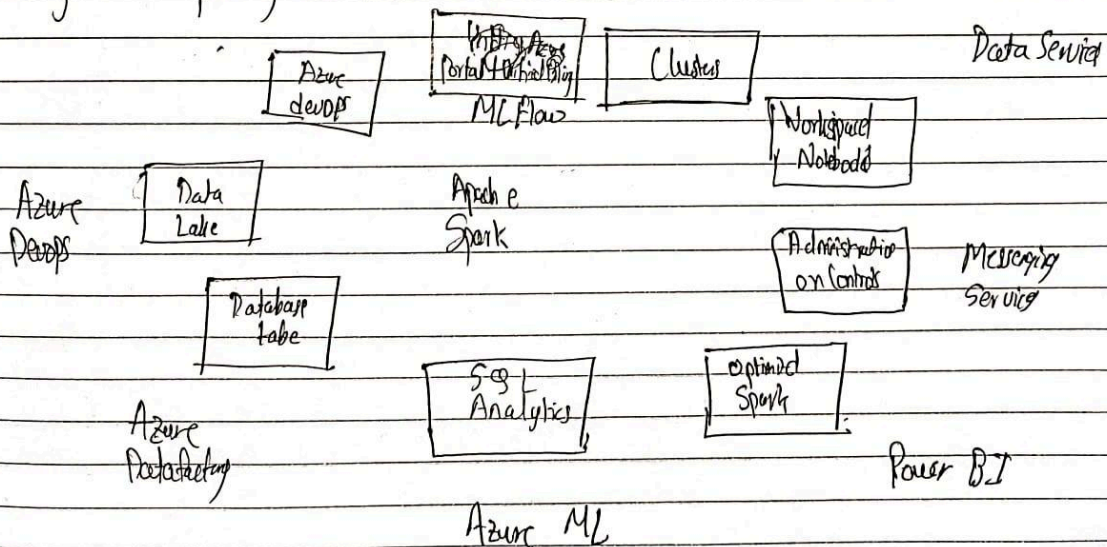 Azure
devops
Portal + Unified Billing
MLFlow
Clusters
Data Service
Workspace
Notebook
Azure
Devops
Data
Lake
Apache
Spark
Administratio
on Controls
Messaging
Service
Database
table
SQL
Analytics
Optimized
Spark
Azure
Datafactory
Power BI
Azure ML